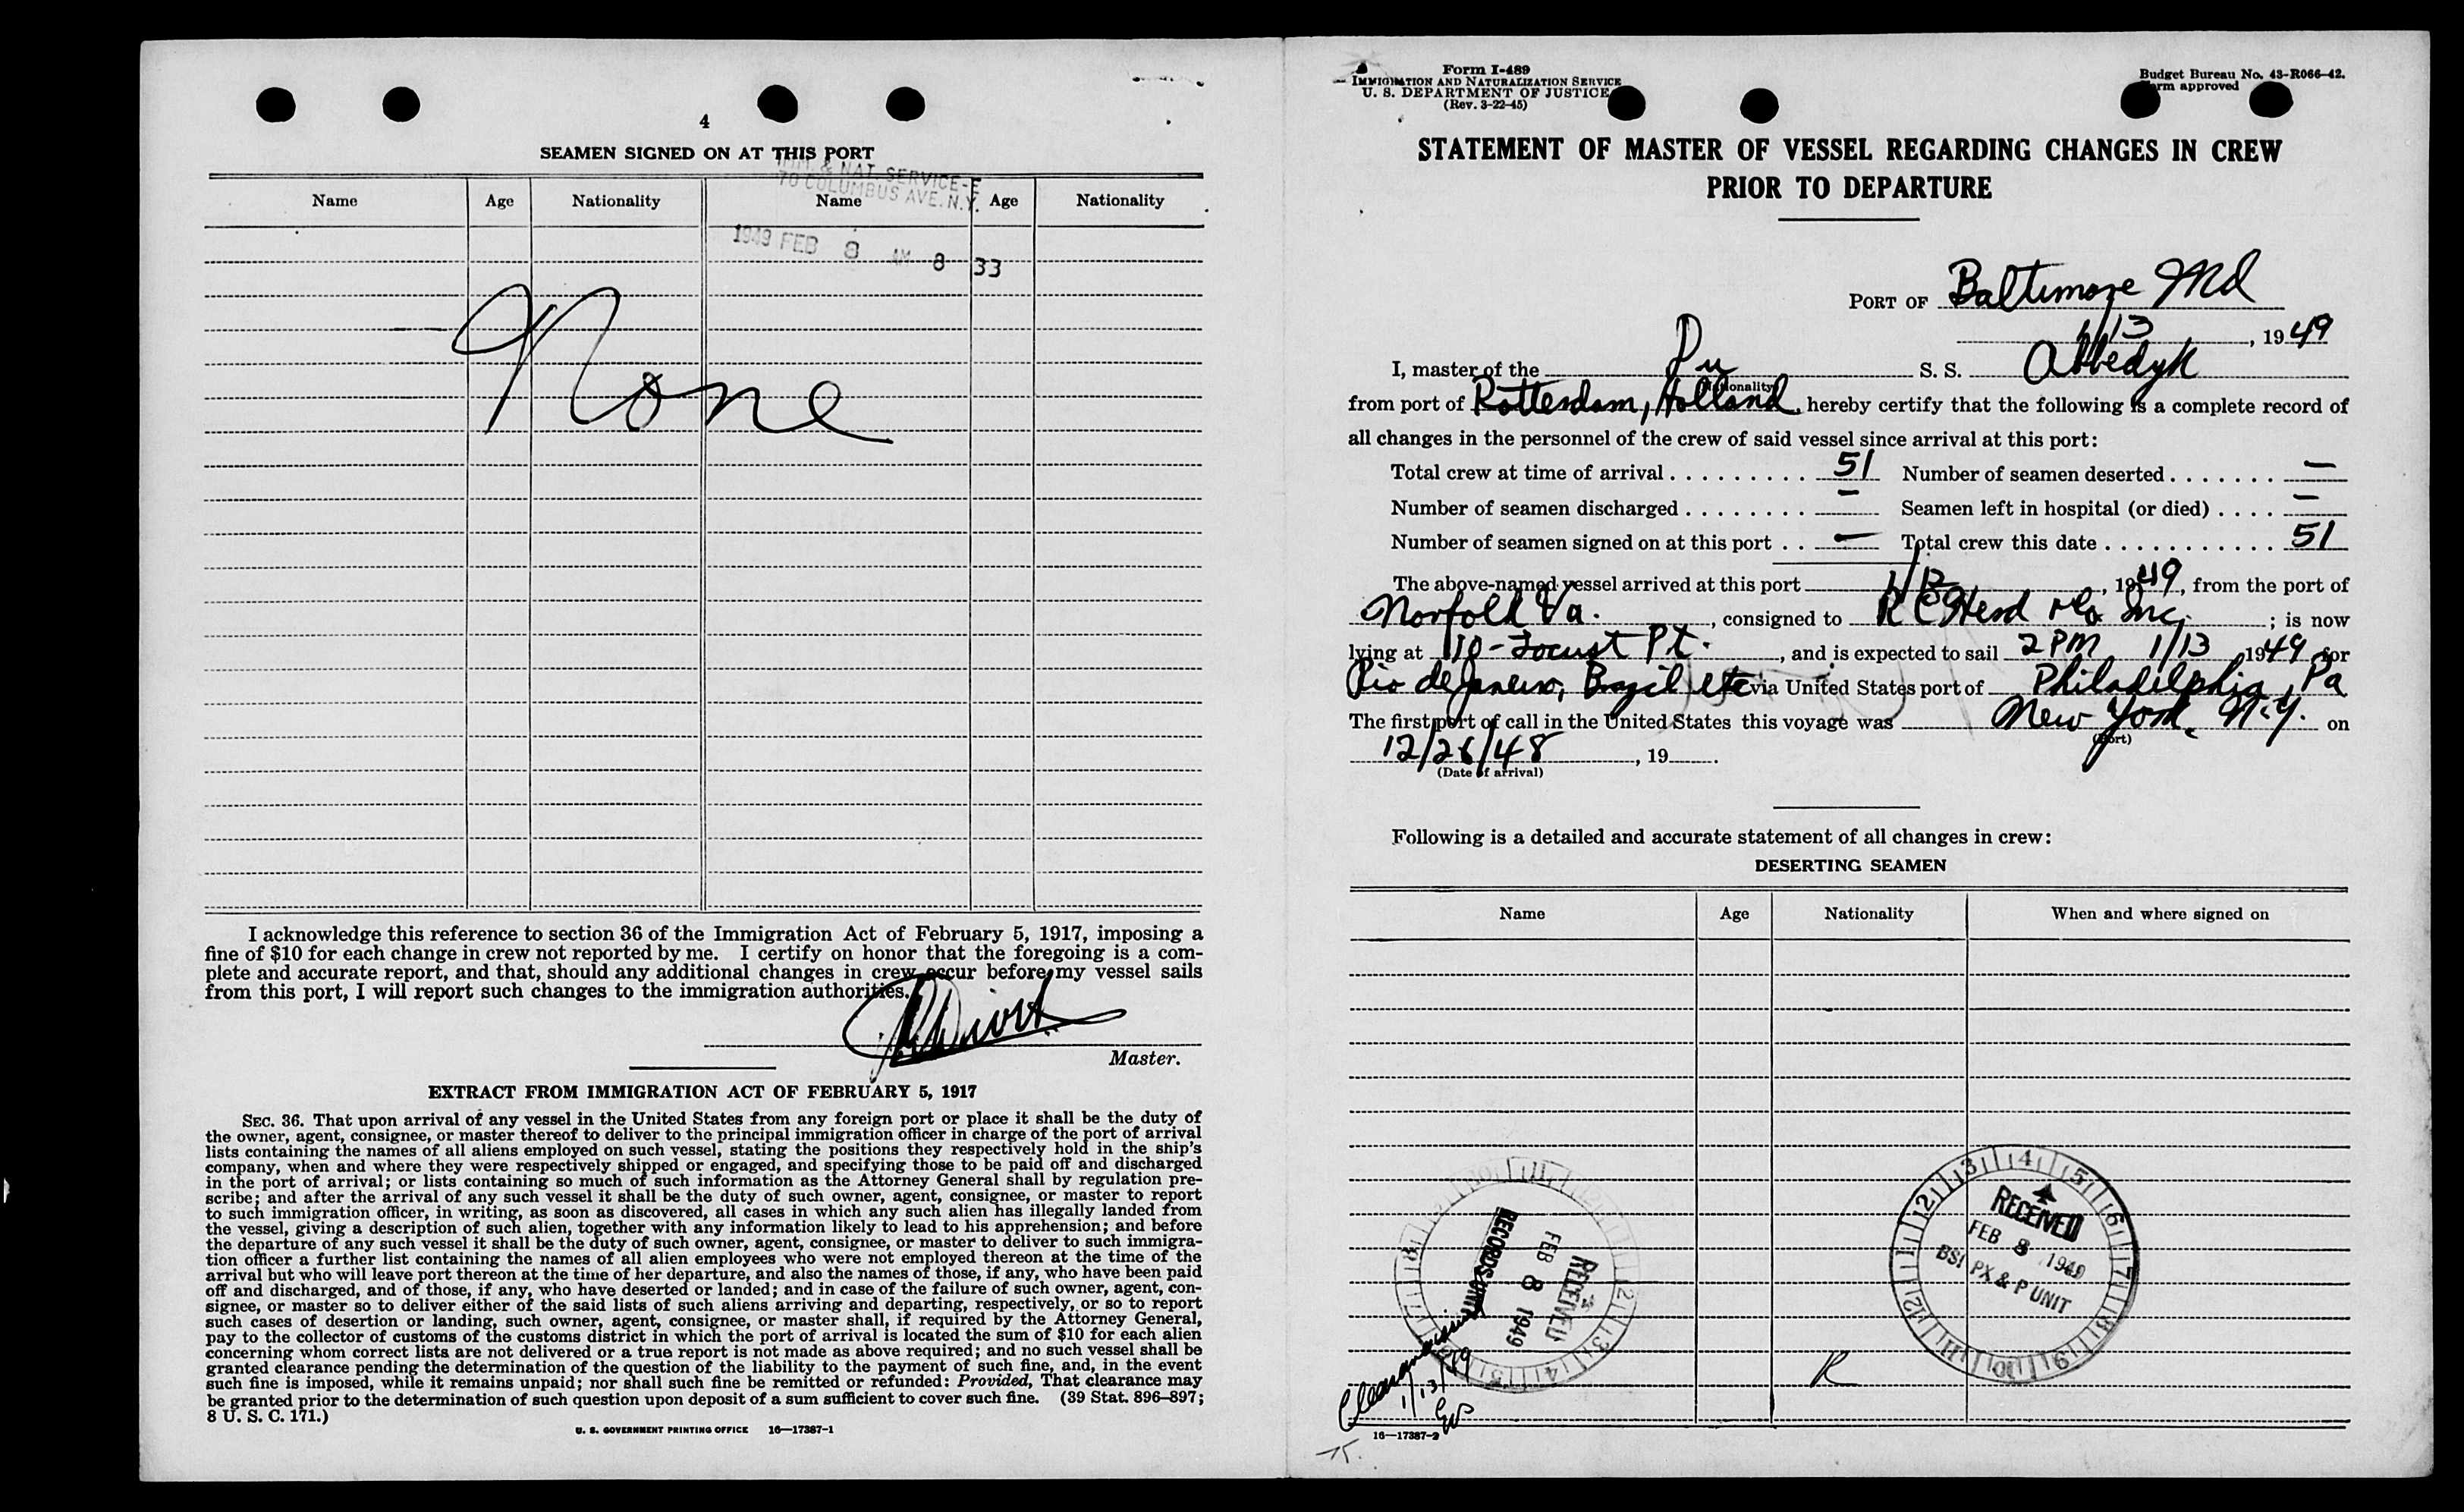 4
SEAMEN SIGNED ON AT THIS PORT
IMM. & NAT. SERVICE-E
70 COLUMBUS AVE. N.Y.
Name Age Nationality Name Age Nationality
1949 FEB 8 AM 8 33
None
I acknowledge this reference to section 36 of the Immigration Act of February 5, 1917, imposing a
fine of $10 for each change in crew not reported by me. I certify on honor that the foregoing is a com-
plete and accurate report, and that, should any additional changes in crew occur before my vessel sails
from this port, I will report such changes to the immigration authorities.
Master.
EXTRACT FROM IMMIGRATION ACT OF FEBRUARY 5, 1917
SEC. 36. That upon arrival of any vessel in the United States from any foreign port or place it shall be the duty of
the owner, agent, consignee, or master thereof to deliver to the principal immigration officer in charge of the port of arrival
lists containing the names of all aliens employed on such vessel, stating the positions they respectively hold in the ship's
company, when and where they were respectively shipped or engaged, and specifying those to be paid off and discharged
in the port of arrival; or lists containing so much of such information as the Attorney General shall by regulation pre-
scribe; and after the arrival of any such vessel it shall be the duty of such owner, agent, consignee, or master to report
to such immigration officer, in writing, as soon as discovered, all cases in which any such alien has illegally landed from
the vessel, giving a description of such alien, together with any information likely to lead to his apprehension; and before
the departure of any such vessel it shall be the duty of such owner, agent, consignee, or master to deliver to such immigra-
tion officer a further list containing the names of all alien employees who were not employed thereon at the time of the
arrival but who will leave port thereon at the time of her departure, and also the names of those, if any, who have been paid
off and discharged, and of those, if any, who have deserted or landed; and in case of the failure of such owner, agent, con-
signee, or master so to deliver either of the said lists of such aliens arriving and departing, respectively, or so to report
such cases of desertion or landing, such owner, agent, consignee, or master shall, if required by the Attorney General,
pay to the collector of customs of the customs district in which the port of arrival is located the sum of $10 for each alien
concerning whom correct lists are not delivered or a true report is not made as above required; and no such vessel shall be
granted clearance pending the determination of the question of the liability to the payment of such fine, and, in the event
such fine is imposed, while it remains unpaid; nor shall such fine be remitted or refunded: Provided, That clearance may
be granted prior to the determination of such question upon deposit of a sum sufficient to cover such fine. (39 Stat. 896–897;
8 U. S. C. 171.)
U. S. GOVERNMENT PRINTING OFFICE 16—17387-1
Form I-489
IMMIGRATION AND NATURALIZATION SERVICE
U. S. DEPARTMENT OF JUSTICE
(Rev. 3-22-45)
Budget Bureau No. 43-R066-42.
Form approved
STATEMENT OF MASTER OF VESSEL REGARDING CHANGES IN CREW
PRIOR TO DEPARTURE
PORT OF Baltimore Md
1/13, 1949
I, master of the Du S. S. Abbedyk
(Nationality)
from port of Rotterdam, Holland, hereby certify that the following is a complete record of
all changes in the personnel of the crew of said vessel since arrival at this port:
Total crew at time of arrival . . . . . . . . . 51 Number of seamen deserted . . . . . . . —
Number of seamen discharged . . . . . . . . — Seamen left in hospital (or died) . . . . —
Number of seamen signed on at this port . . — Total crew this date . . . . . . . . . . . 51
The above-named vessel arrived at this port 1/12, 1949, from the port of
Norfolk Va., consigned to R C Herd & Co Inc.; is now
lying at 110-Locust Pt., and is expected to sail 2 PM 1/13 1949 for
Rio de Janeiro, Brazil etc via United States port of Philadelphia, Pa
The first port of call in the United States this voyage was New York, N.Y. on
(Port)
12/26/48, 19
(Date of arrival)
Following is a detailed and accurate statement of all changes in crew:
DESERTING SEAMEN
Name Age Nationality When and where signed on
RECEIVED
FEB 8 1949
RECORDS UNIT
RECEIVED
FEB 8 1949
BSI PX & P UNIT
R
1/13/49
16—17387-2